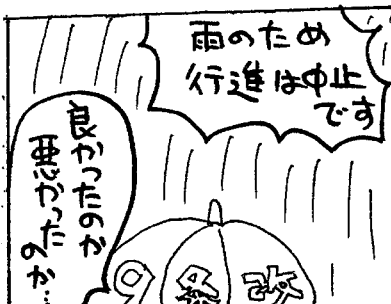 雨のため
行進は中止
です
良かったのが
悪かった
のか…
9条改